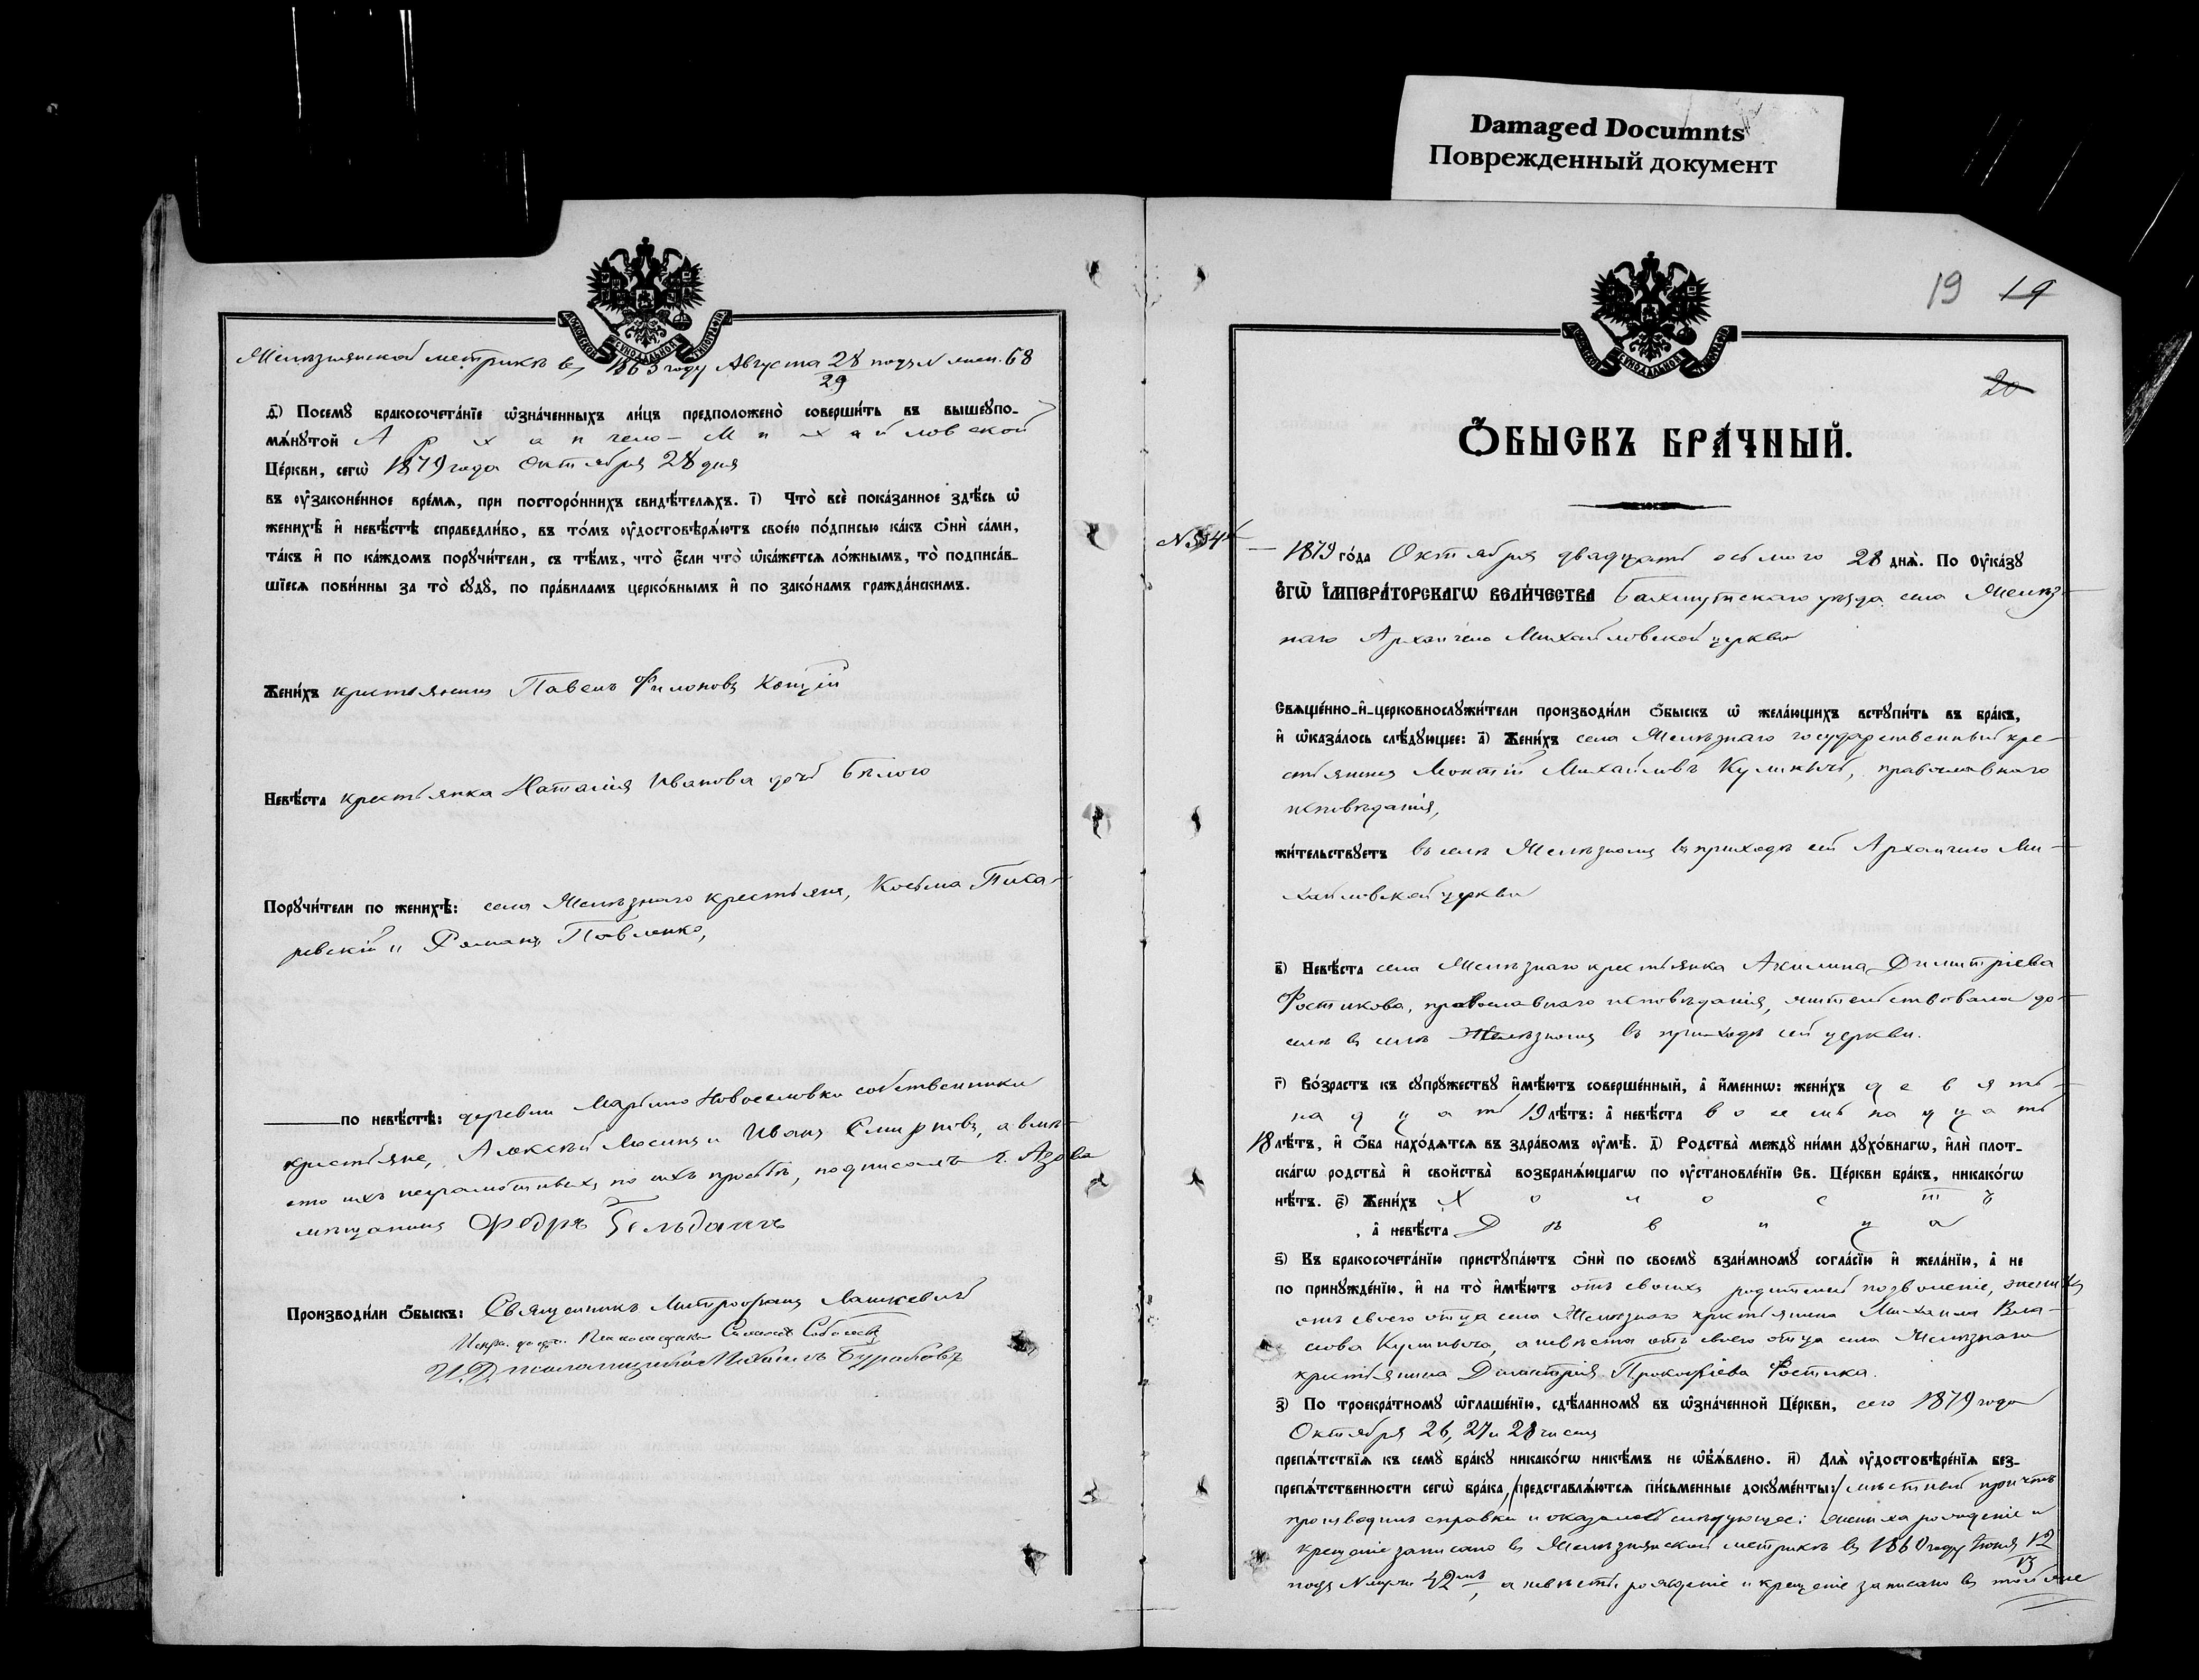 Damaged Documnts
Поврежденный документ
МОСКОВСКОЙ СѴНОДАЛЬНОЙ ТИПОГРАФІИ
Желѣзнянской метрикѣ въ 1863 году Августа 28/29 подъ № жен. 68
д҃) Посемꙋ бракосочета́нїе ѡ҆зна́ченныхъ ли́цъ предположено̀ соверши́ть въ вышеꙋпо-
мѧ́нꙋтой Архангело-Михайловской
Це́ркви, сегѡ̀ 1879 года Октября 28 дня
въ ᲂу҆законе́нное вре́мѧ, при посторо́ннихъ свидѣ́телѧхъ. і҃) Что̀ всѐ пока́занное здѣ́сь ѡ҆
женихѣ̀ и҆ невѣ́стѣ справедли́во, въ то́мъ ᲂу҆достовѣрѧ́ютъ свое́ю по́дписью ка́къ ѻ҆нѝ са́ми,
та́къ и҆ по ка́ждомъ порꙋчи́тели, съ тѣ́мъ, что̀ є҆́сли что̀ ѡ҆ка́жетсѧ ло́жнымъ, то̀ подписа́в-
шїесѧ пови́нны за то̀ сꙋдꙋ̀, по пра́виламъ церко́внымъ и҆ по зако́намъ гражда́нскимъ.
Жени́хъ крестьянинъ Павелъ Филоновъ
Невѣ́ста крестьянка Наталія Иванова дочь Бѣлого
Порꙋчи́тели по женихѣ̀: села Желѣзнаго крестьяне, Косьма Писа-
ревскій и Романъ Павленко,
по невѣ́стѣ: деревни Марьино Новоселовки собственники
крестьяне, Алексѣй Лисинъ и Иванъ Смирновъ, а вмѣ-
сто ихъ неграмотныхъ по ихъ прозьбѣ, подписалъ г. Азова
мѣщанинъ Федръ Бельдинъ
Производи́ли ѻ҆́быскъ: Священникъ Митрофанъ Лашкевичъ
И.Д. псаломщика Михаилъ Бурабовъ
МОСКОВСКОЙ СѴНОДАЛЬНОЙ ТИПОГРАФІИ
19 19
20
Ѻ҆́БЫСКЪ БРА́ЧНЫЙ.
1879 го́да Октября двадцать осьмого 28 днѧ̀. По ᲂу҆ка́зꙋ
Є҆ГѠ̀ І҆МПЕРА́ТОРСКАГѠ ВЕЛИ́ЧЕСТВА Бахмутскаго уѣзда села Желѣз-
наго Архангело Михайловской церкви
Свѧще́нно-и҆-церковнослꙋжи́тели производи́ли ѻ҆́быскъ ѡ҆ жела́ющихъ встꙋпи́ть въ бра́къ,
и҆ ѡ҆каза́лось слѣ́дꙋющее: а҃) Жени́хъ села Желѣзнаго государственный кре-
стьянинъ Мокій Михайловъ Куликъ, православнаго
исповѣданія,
жи́тельствꙋетъ въ селѣ Желѣзномъ въ приходѣ сей Архангело Ми-
хайловской церкви
в҃) Невѣ́ста села Желѣзнаго крестьянка Акилина Димитріева
Фостикова, православнаго исповѣданія, жительствовала до-
селѣ въ селѣ Желѣзномъ въ приходѣ сей церкви.
г҃) Во́зрастъ къ сꙋпрꙋ́жествꙋ и҆мѣ́ютъ соверше́нный, а҆ и҆́меннѡ: жени́хъ девят-
надцать 19 лѣ́тъ: а҆ невѣ́ста восемьнадцать
18 лѣ́тъ, и҆ ѻ҆́ба нахо́дѧтсѧ въ здра́вомъ ᲂу҆мѣ̀. д҃) Родства̀ междꙋ̀ ни́ми дꙋхо́внагѡ, и҆лѝ плот-
ска́гѡ родства̀ и҆ свойства̀ возбранѧ́ющагѡ по ᲂу҆становле́нїю Св. Це́ркви бра́къ, никако́гѡ
нѣ́тъ. є҃) Жени́хъ Холостъ
, а҆ невѣ́ста Дѣвица
ѕ҃) Къ бракосочета́нїю пристꙋпа́ютъ ѻ҆нѝ по своемꙋ̀ взаи́мномꙋ согла́сїю и҆ жела́нїю, а҆ не
по принꙋжде́нїю, и҆ на то̀ и҆мѣ́ютъ отъ своихъ родителей позволеніе, женихъ
отъ своего отца села Желѣзнаго крестьянина Михаила Вла-
сова Кулика, а невѣста отъ своего отца села Желѣзнаго
крестьянина Димитрія Прокофіева Фостика.
з҃) По троекра́тномꙋ ѡ҆глаше́нїю, сдѣ́ланномꙋ въ ѡ҆зна́ченной Це́ркви, сего 1879 года
Октября 26, 27 и 28 числъ
препѧ́тствїѧ къ семꙋ̀ бра́кꙋ никако́гѡ никѣ́мъ не ѡ҆б̾ѧ́влено. и҃) Длѧ̀ ᲂу҆достовѣре́нїѧ без-
препѧ́тственности сегѡ̀ бра́ка, /представлѧ́ютсѧ пи́сьменные докꙋме́нты:/ мѣстный причтъ
производилъ справки и оказалось слѣдующее: жениха рожденіе и
крещеніе записано въ Желѣзнянской метрикѣ въ 1860 году Іюня 12/13
подъ № муж. 42мъ, а невѣсты рожденіе и крещеніе записано въ той же